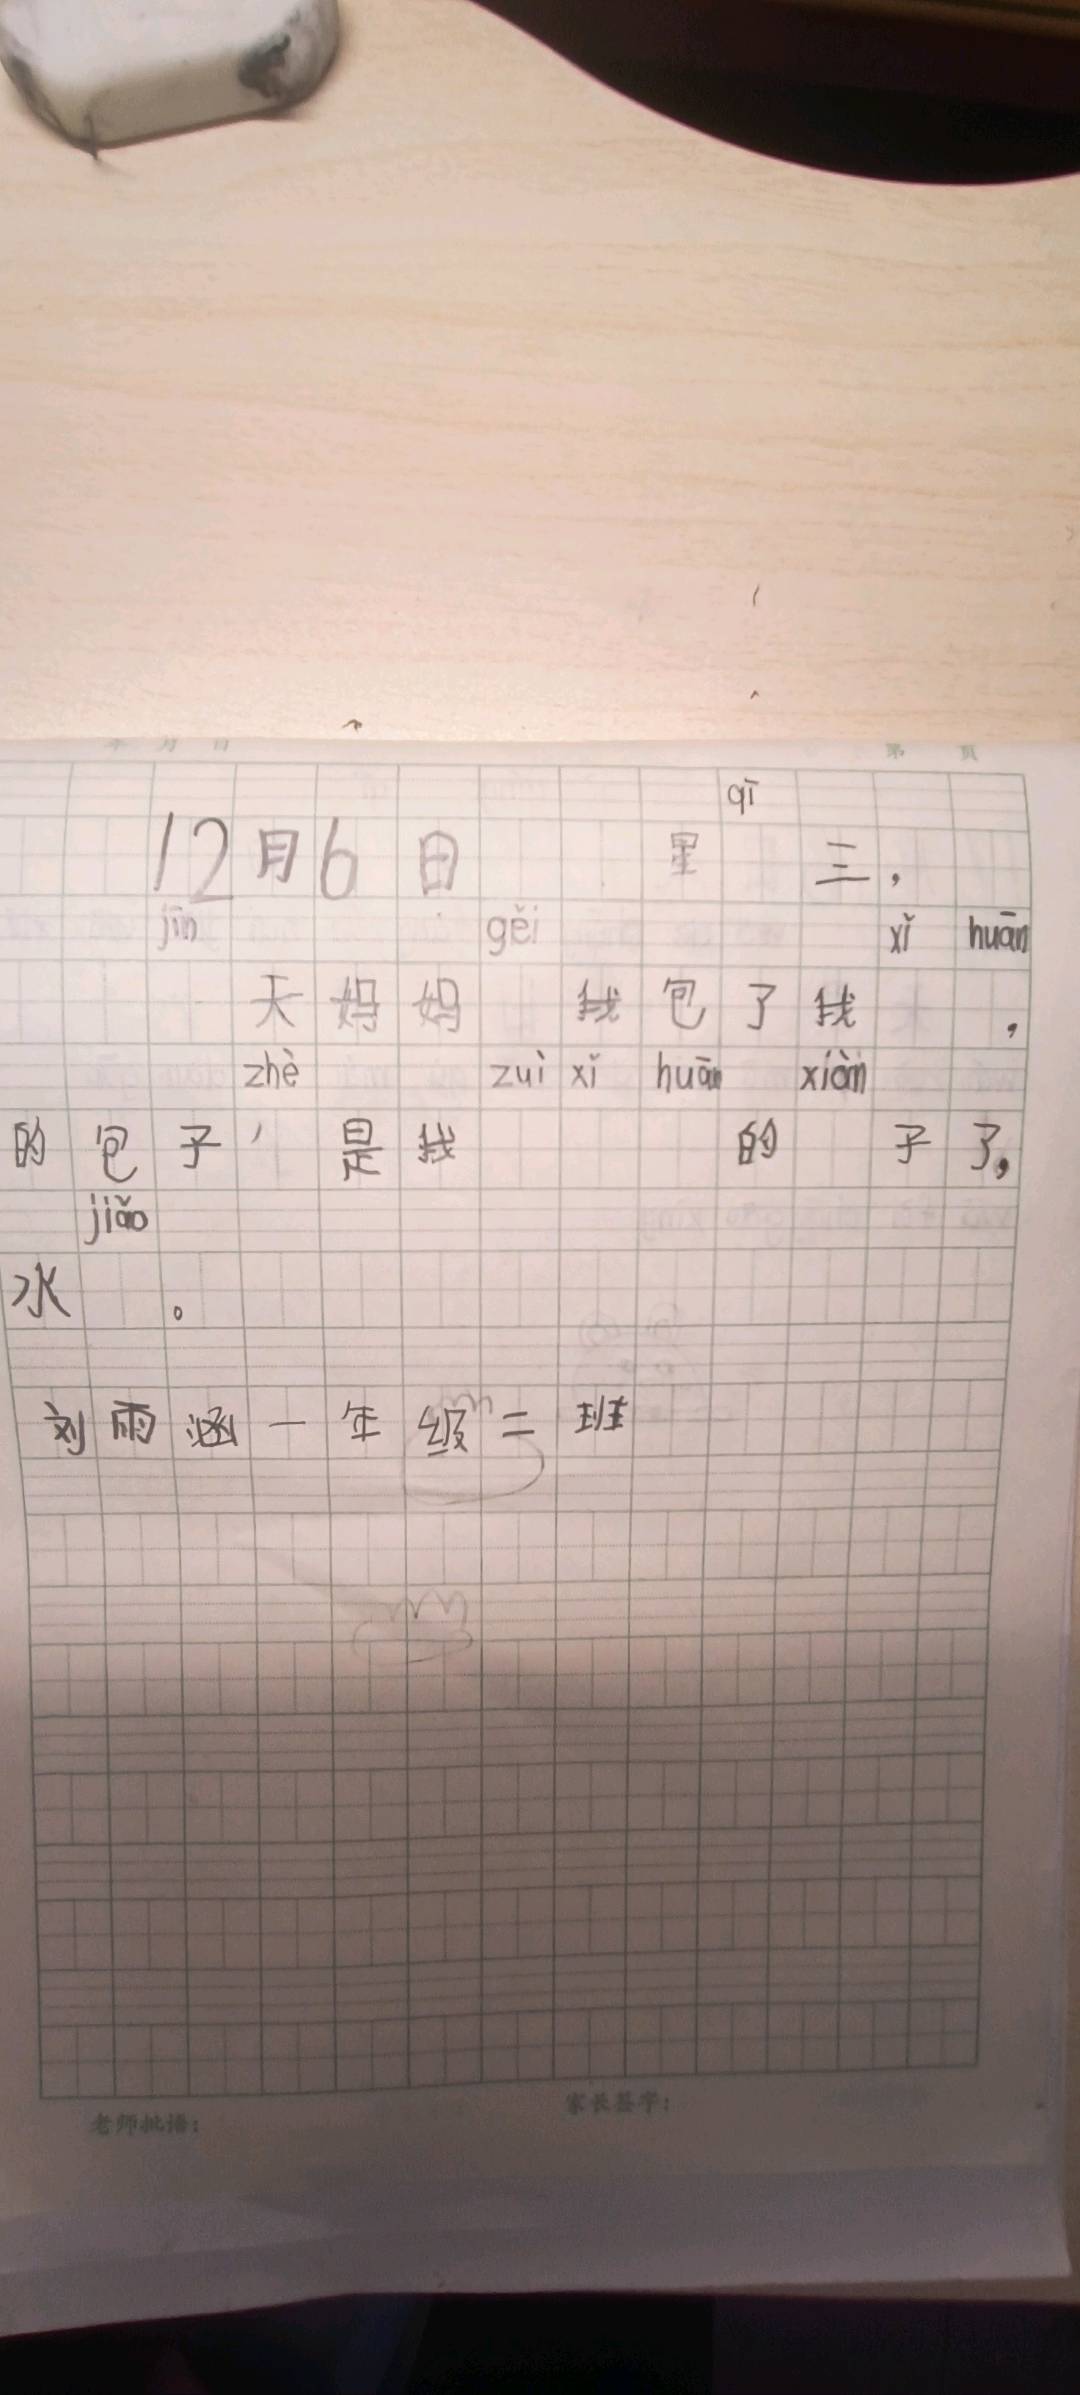 年 月 日 第 页
qī
12月6日 星 三，
jīn gěi xǐ huān
天妈妈 我包了我 ，
zhè zuì xǐ huān xiàn
的包子， 是我 的 子了，
jiǎo
水 。
刘雨涵一年级二班
老师批语： 家长签字：